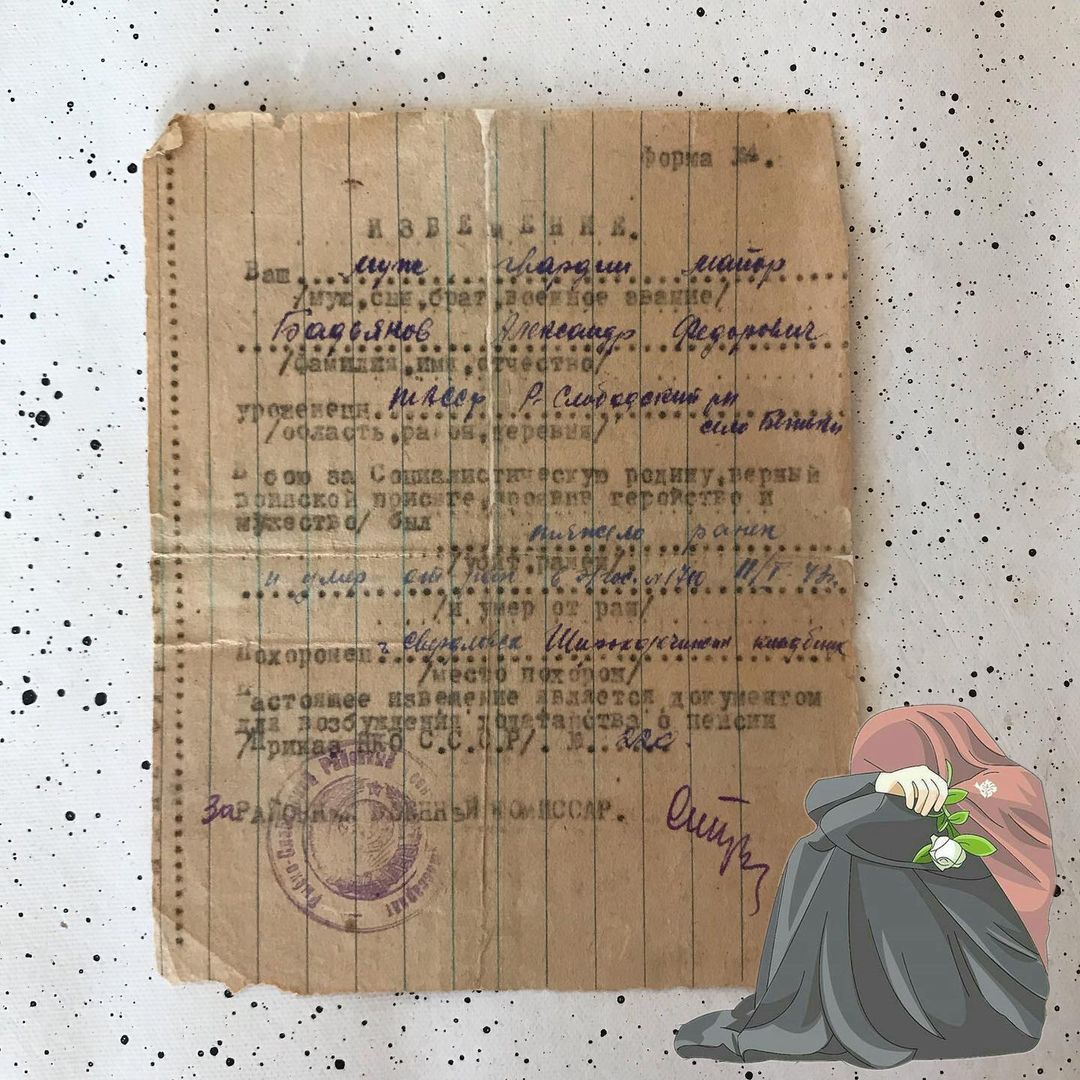 Форма №4.
ИЗВЕЩЕНИЕ.
Ваш муж гвардии майор
/муж,сын,брат,военное звание/
Бадьянов Александр Федорович
/фамилия,имя,отчество/
уроженец ТАССР Р-Слободский рн
/область,район,деревня/ село
В бою за Социалистическую родину,верный
воинской присяге,проявив геройство и
мужество/ был тяжело ранен
/убит,ранен/
и умер от ран в
/и умер от ран/
Похоронен г. Свердловск кладбище
/место похорон/
Настоящее извещение является документом
для возбуждения ходатайства о пенсии
/Приказ НКО С.С.С.Р/. №
За РАЙОННЫЙ ВОЕННЫЙ КОМИССАР.